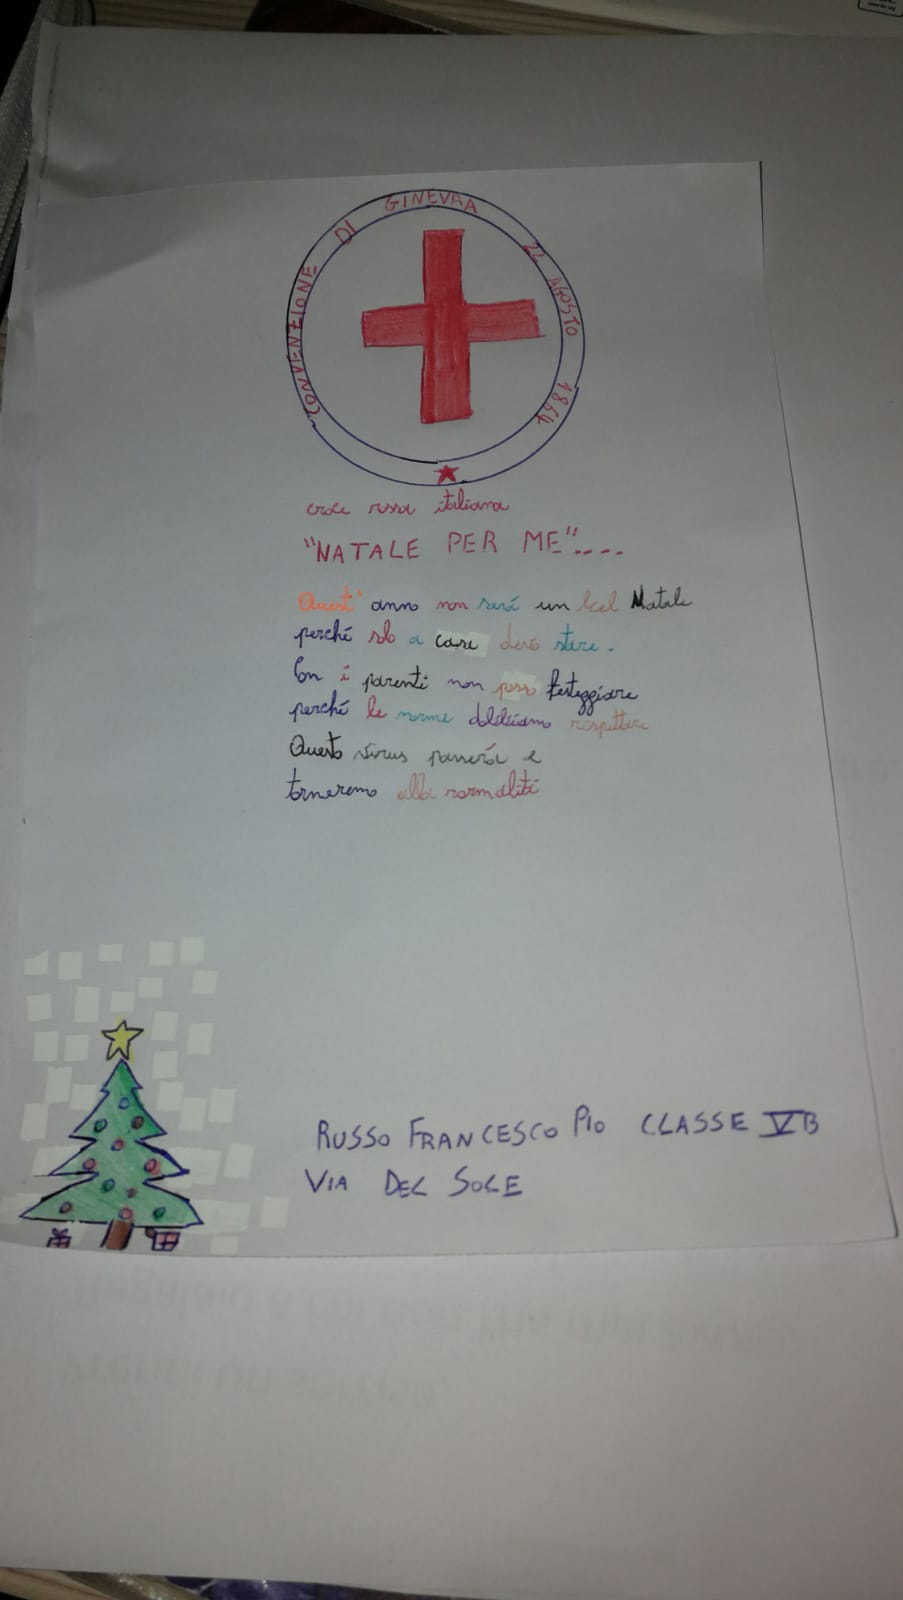 CONVENZIONE DI GINEVRA 22 AGOSTO 1864
croce rossa italiana
"NATALE PER ME"....
Quest' anno non sará un bel Natale
perché solo a casa devo stare.
Con i parenti non posso festeggiare
perché le norme dobbiamo rispettare
Questo virus passerá e
torneremo alla normalitá
RUSSO FRANCESCO PIO CLASSE VB
VIA DEL SOLE